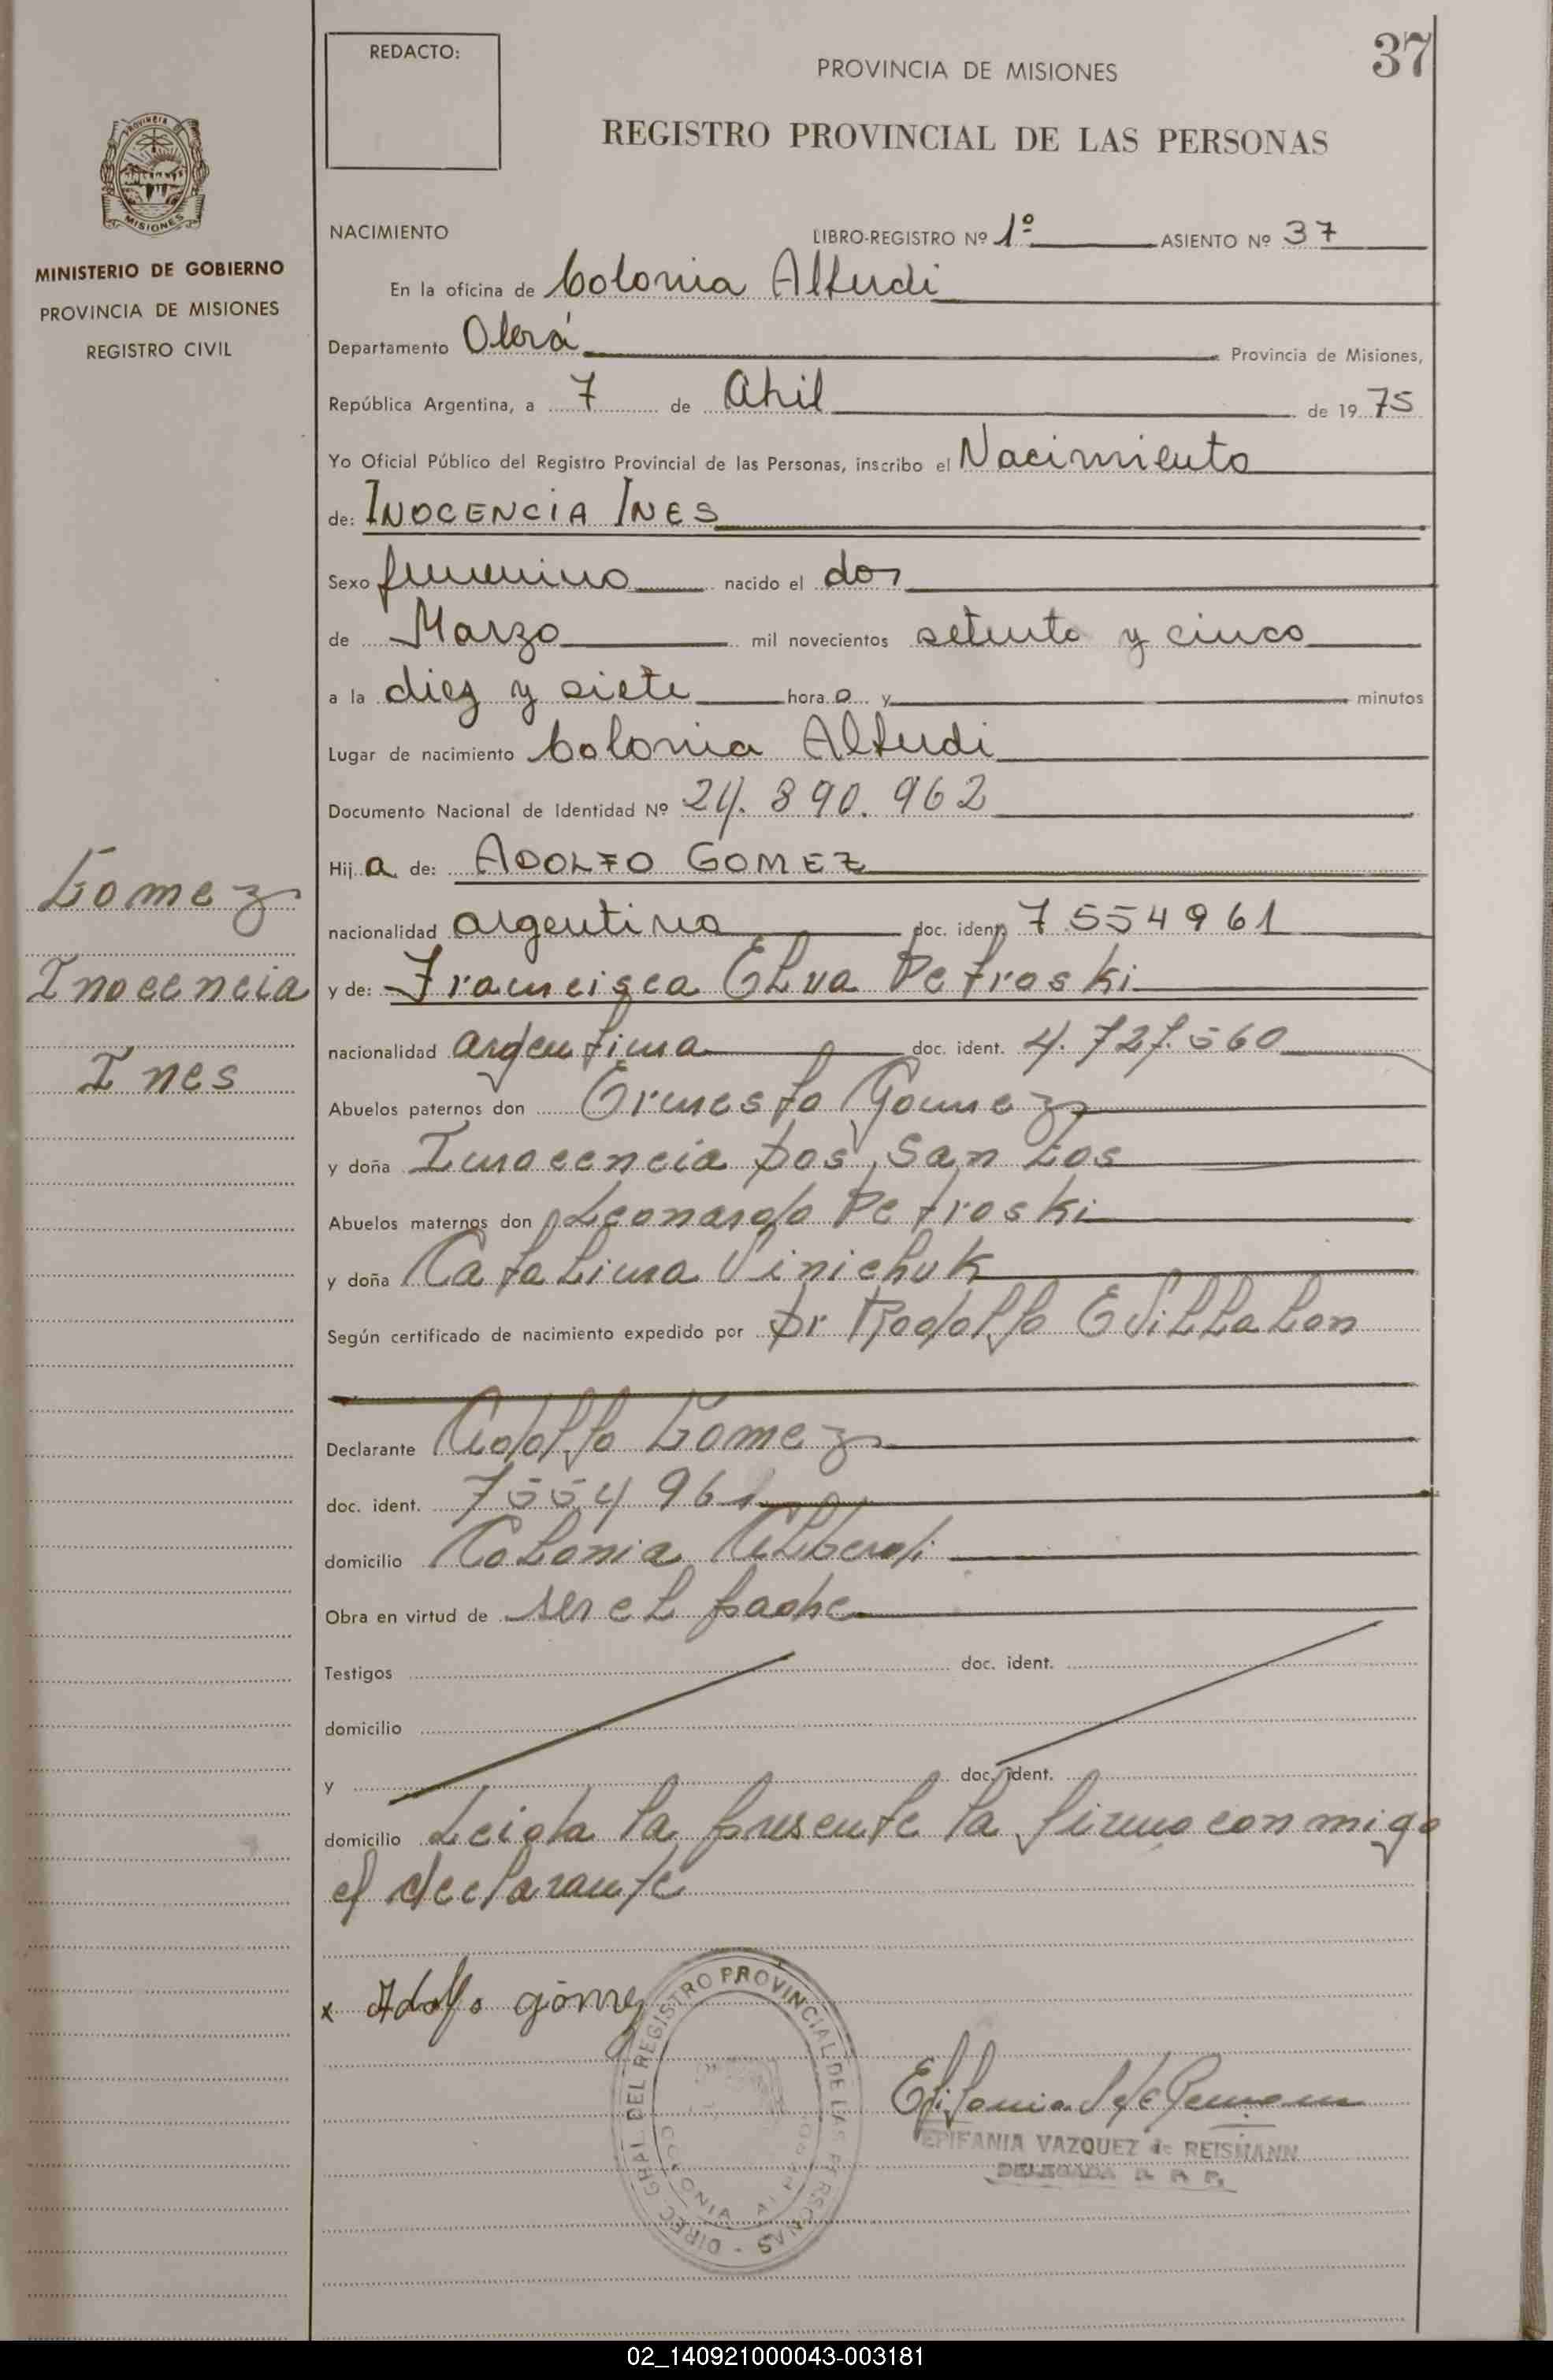 37
REDACTO:
PROVINCIA DE MISIONES
REGISTRO PROVINCIAL DE LAS PERSONAS
PROVINCIA DE
MISIONES
MINISTERIO DE GOBIERNO
PROVINCIA DE MISIONES
REGISTRO CIVIL
NACIMIENTO LIBRO-REGISTRO Nº 1º ASIENTO Nº 37
En la oficina de Colonia Alberdi
Departamento Oberá Provincia de Misiones,
República Argentina, a 7 de Abril de 1975
Yo Oficial Público del Registro Provincial de las Personas, inscribo el Nacimiento
de: INOCENCIA INES
Sexo femenino nacido el dos
de Marzo mil novecientos setenta y cinco
a la diez y siete hora o y minutos
Lugar de nacimiento Colonia Alberdi
Documento Nacional de Identidad Nº 24.890.962
Hija de: ADOLFO GOMEZ
nacionalidad argentina doc. ident. 7554961
y de: Francisca Elva Petroski
nacionalidad argentina doc. ident. 4.727.560
Abuelos paternos don Ernesto Gomez
y doña Inocencia Dos Santos
Abuelos maternos don Leonardo Petroski
y doña Catalina Vinichuk
Según certificado de nacimiento expedido por Dr Rodolfo E Villalon
Gomez
Inocencia
Ines
Declarante Adolfo Gomez
doc. ident. 7554961
domicilio Colonia Alberdi
Obra en virtud de ser el padre
Testigos doc. ident.
domicilio
y doc. ident.
domicilio Leida la presente la firma conmigo
el declarante
x Adolfo gómez
DIREC GRAL DEL REGISTRO PROVINCIAL DE LAS PERSONAS -
COLONIA ALBERDI
EPIFANIA VAZQUEZ de REISMANN
DELEGADA R. P. P.
02_140921000043-003181